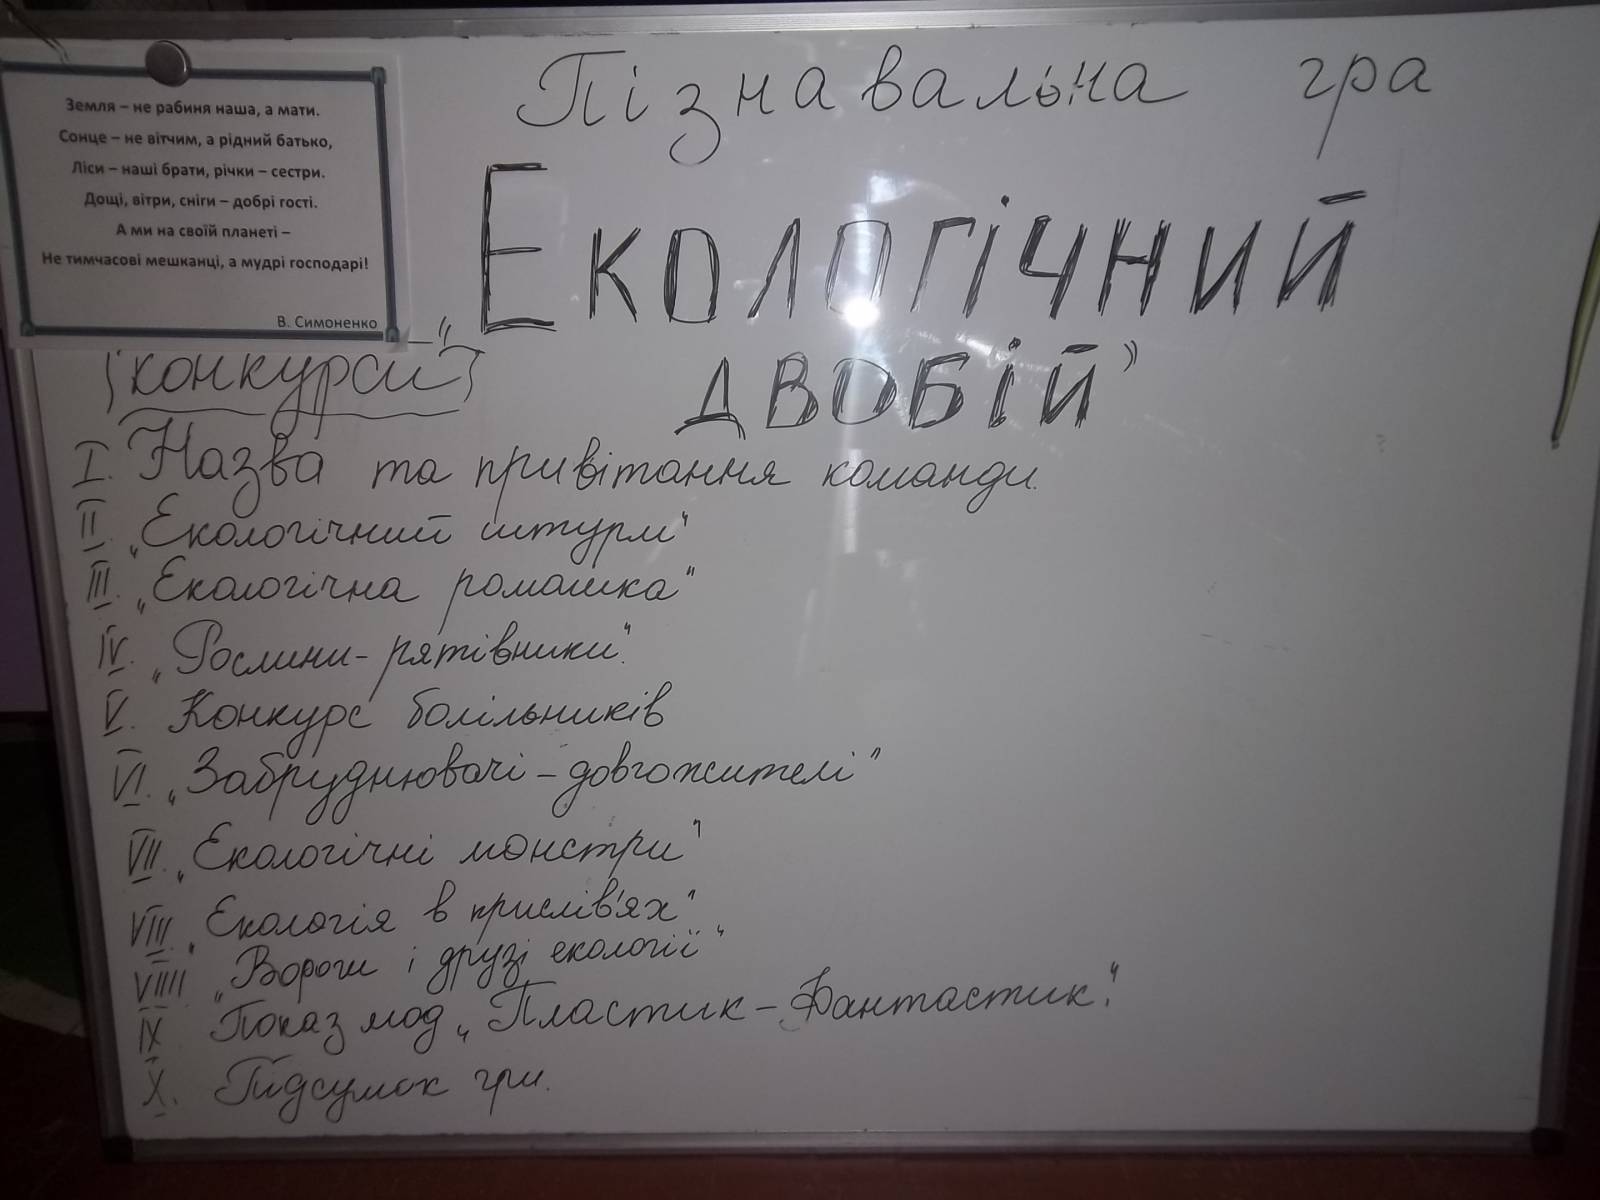 Земля – не рабиня наша, а мати.
Сонце – не вітчим, а рідний батько,
Ліси – наші брати, річки – сестри.
Дощі, вітри, сніги – добрі гості.
А ми на своїй планеті –
Не тимчасові мешканці, а мудрі господарі!
В. Симоненко
Пізнавальна гра
„Екологічний
двобій"
(конкурси)
I. Назва та привітання команди.
II. „Екологічний штурм"
III. „Екологічна ромашка"
IV. „Рослини-рятівники".
V. Конкурс болільників
VI. „Забруднювачі – довгожителі"
VII. „Екологічні монстри"
VIII „Екологія в прислів'ях"
VIIII „Вороги і друзі екології"
IX Показ мод „Пластик – Фантастик".
X. Підсумок гри.